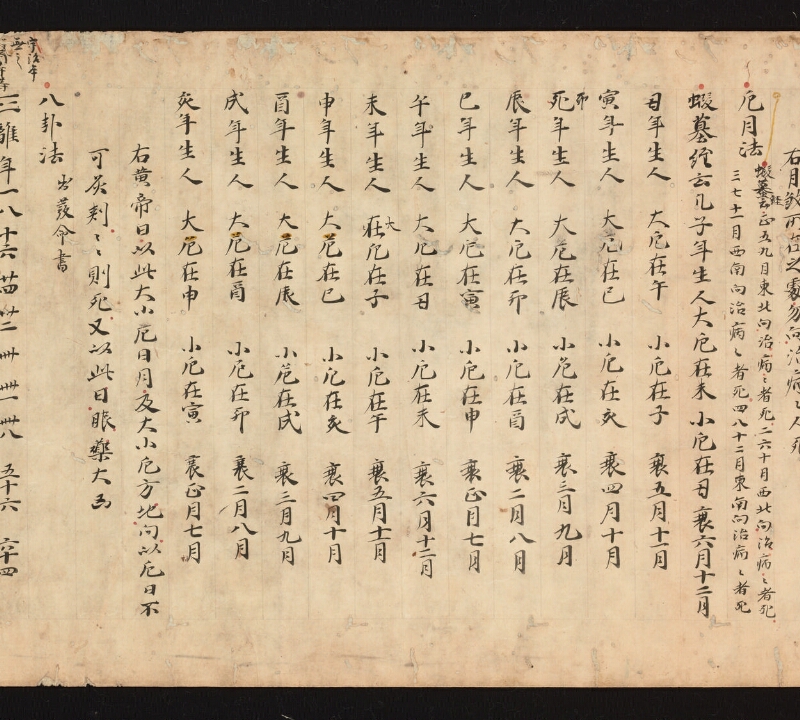 右月殺所在之處勿向治病之人死
厄月法 蝦蟇經云正五九月東北向治病〻者死二六十月西北向治病〻者死
三七十一月西南向治病〻者死四八十二月東南向治病〻者死
蝦蟇經云凡子年生人大厄在未小厄在丑衰六月十二月
丑年生人 大厄在午 小厄在子 衰五月十一月
寅年生人 大厄在巳 小厄在亥 衰四月十月
卯年生人 大厄在辰 小厄在戌 衰三月九月
辰年生人 大厄在卯 小厄在酉 衰二月八月
巳年生人 大厄在寅 小厄在申 衰正月七月
午年生人 大厄在丑 小厄在未 衰六月十二月
未年生人 大在厄在子 小厄在午 衰五月十一月
申年生人 大厄在巳 小厄在亥 衰四月十月
酉年生人 大厄在辰 小厄在戌 衰三月九月
戌年生人 大厄在酉 小厄在卯 衰二月八月
亥年生人 大厄在申 小厄在寅 衰正月七月
右黄帝曰以此大小厄日月及大小厄方地向以厄日不
可灸刺〻〻則死又以此日服藥大凶
八卦法 出發命書
三離年一八十六廿四卅二卌卌一卌八 五十六 六十四